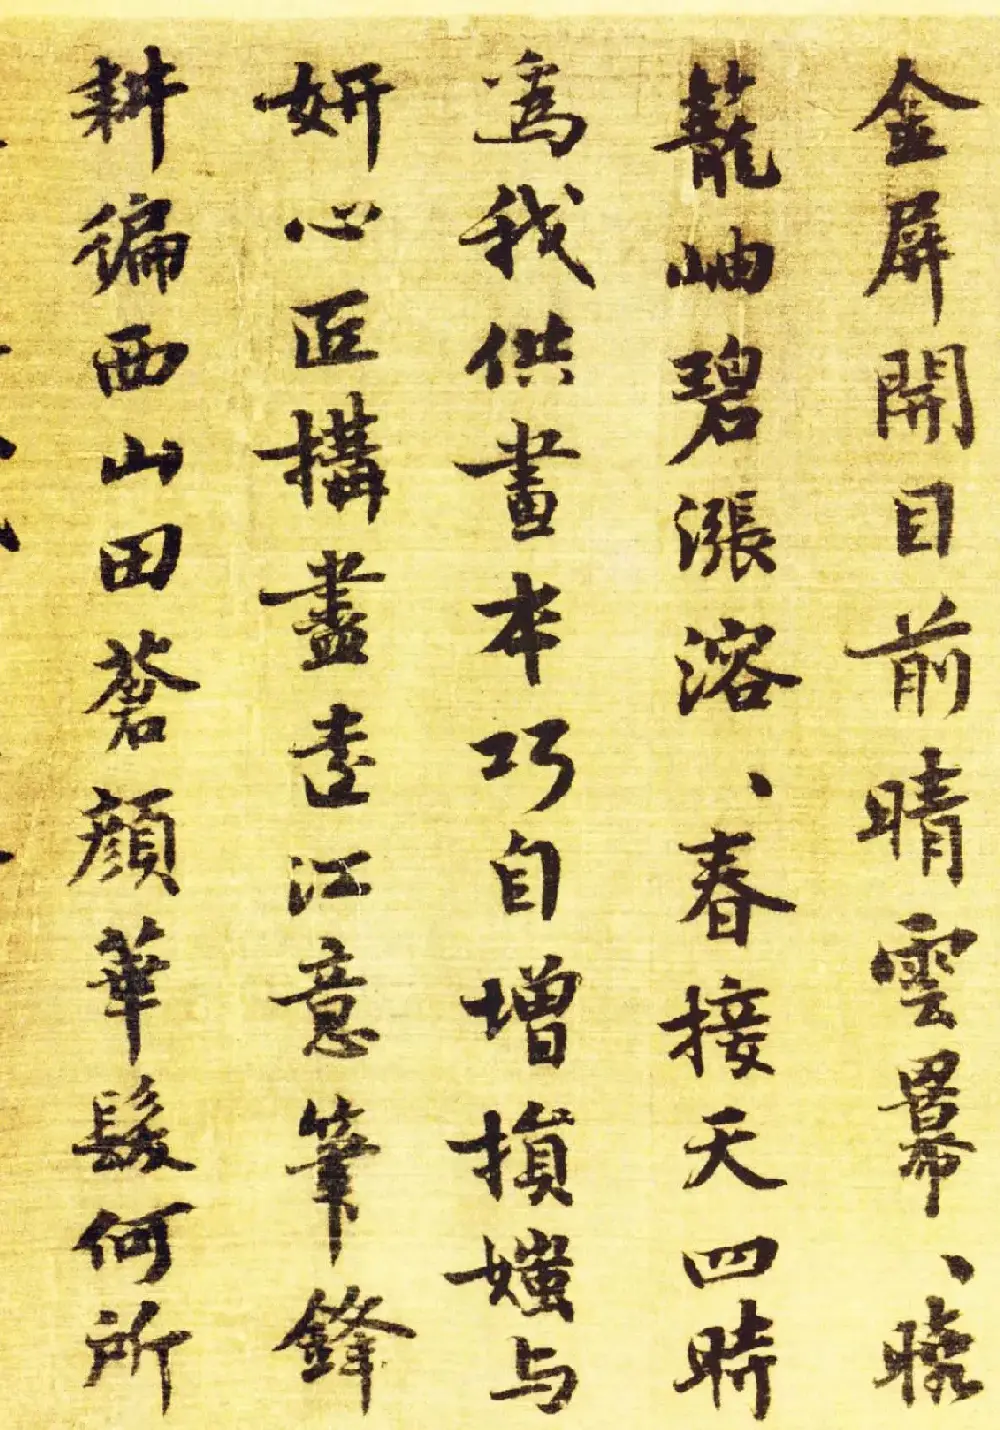 金屏開目前晴雲羃、曉
籠岫碧漲溶、春接天四時
為我供畫本巧自增損媸与
妍心匠搆盡遠江意筆鋒
耕徧西山田蒼顏華髮何所